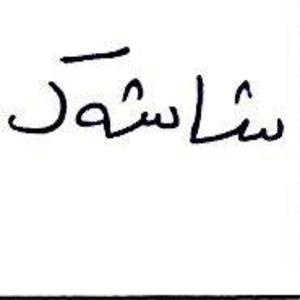 شاشەک